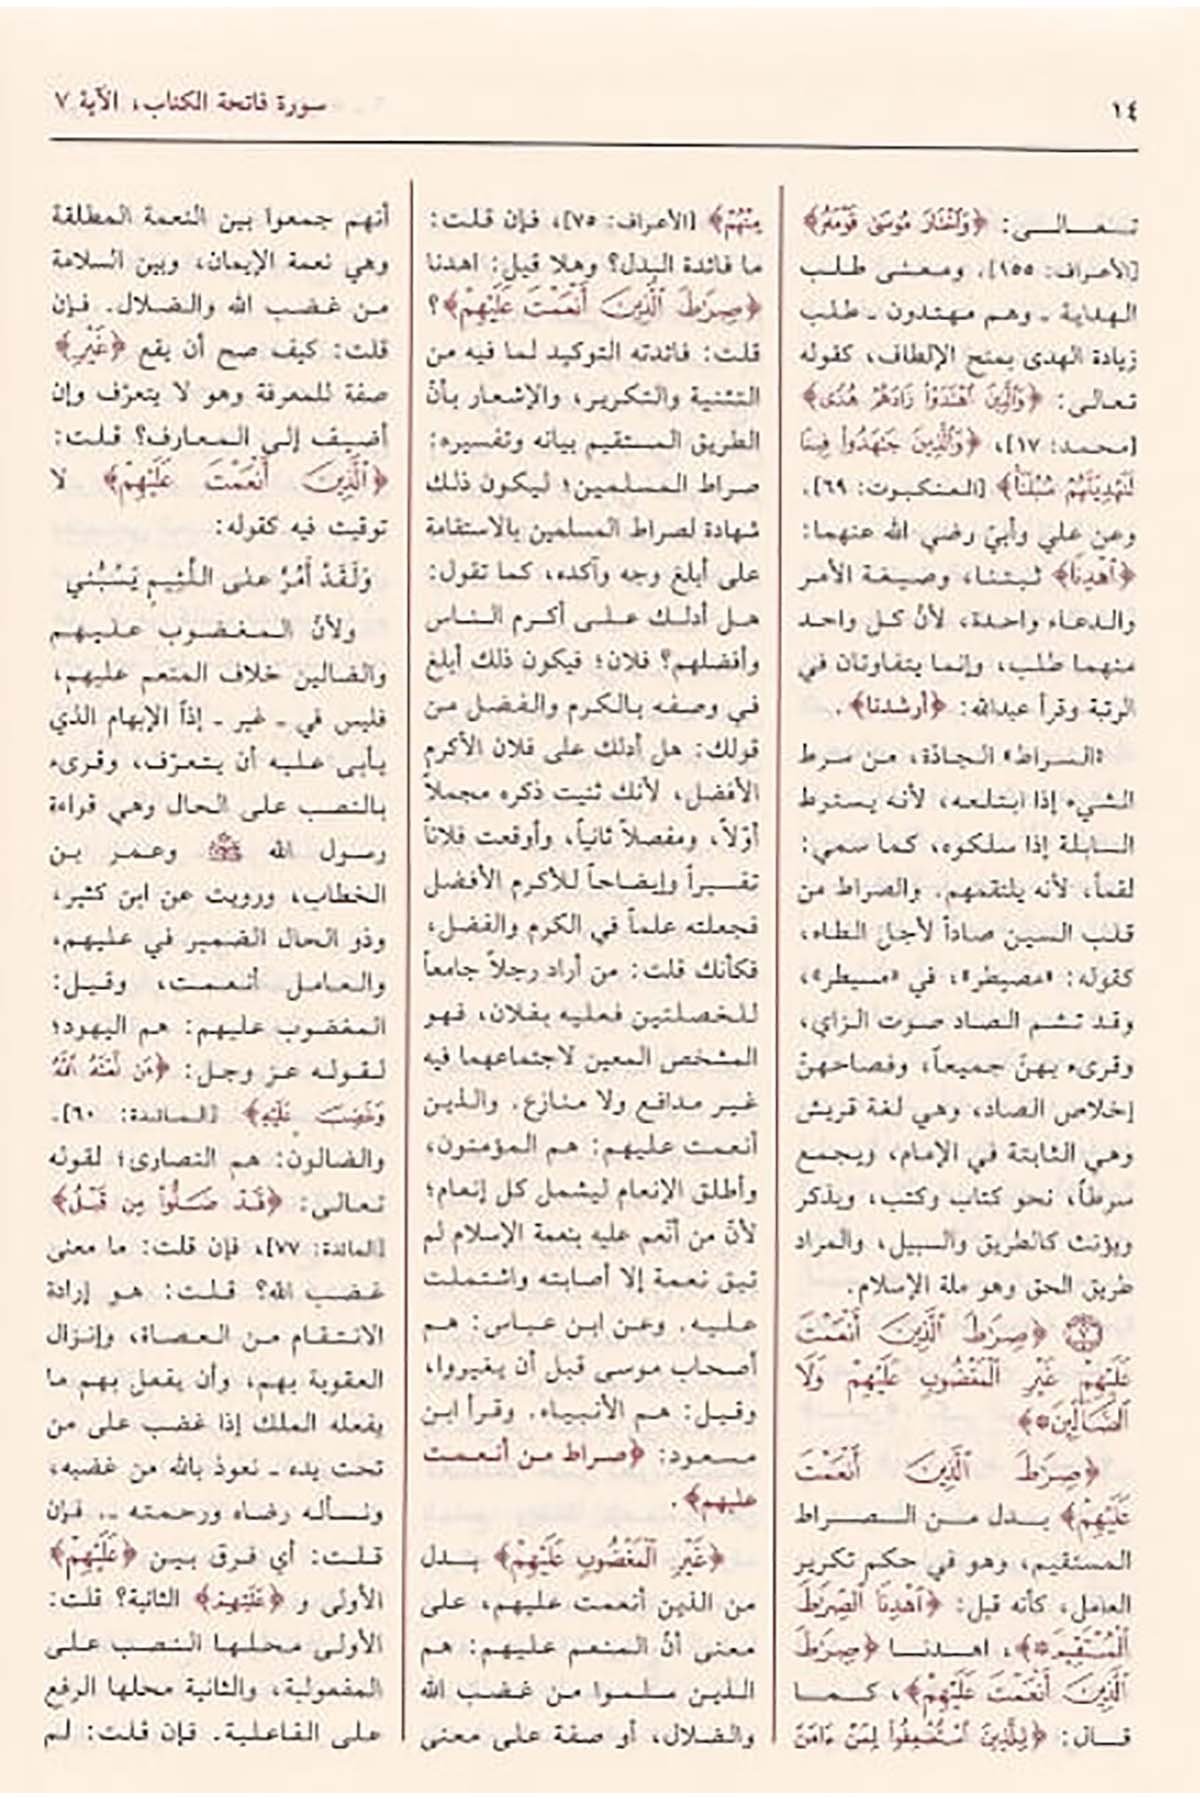 ١٤
سورة فاتحة الكتاب، الآية ٧
تعالى: ﴿وَٱخْتَارَ مُوسَىٰ قَوْمَهُۥ﴾
[الأعراف: ١٥٥]. ومعنى طلب
الهداية ـ وهم مهتدون ـ طلب
زيادة الهدى بمنح الإلطاف، كقوله
تعالى: ﴿وَٱلَّذِينَ ٱهْتَدَوْا۟ زَادَهُمْ هُدًى﴾
[محمد: ١٧]، ﴿وَٱلَّذِينَ جَٰهَدُوا۟ فِينَا
لَنَهْدِيَنَّهُمْ سُبُلَنَا﴾ [العنكبوت: ٦٩].
وعن علي وأبيّ رضي الله عنهما:
﴿ٱهْدِنَا﴾ ثبتنا، وصيغة الأمر
والدعاء واحدة، لأنّ كل واحد
منهما طلب، وإنما يتفاوتان في
الرتبة وقرأ عبدالله: ﴿أرشدنا﴾.
«السراط» الجادّة، من سرط
الشيء إذا ابتلعه، لأنه يسترط
السابلة إذا سلكوه، كما سمي:
لقماً، لأنه يلتقمهم. والصراط من
قلب السين صاداً لأجل الطاء،
كقوله: «مصيطر»، في «مسيطر»،
وقد تشم الصاد صوت الزاي،
وقرىء بهنّ جميعاً، وفصاحهنّ
إخلاص الصاد، وهي لغة قريش
وهي الثابتة في الإمام، ويجمع
سرطاً، نحو كتاب وكتب، ويذكر
ويؤنث كالطريق والسبيل، والمراد
طريق الحق وهو ملة الإسلام.
٧ ﴿صِرَٰطَ ٱلَّذِينَ أَنْعَمْتَ
عَلَيْهِمْ غَيْرِ ٱلْمَغْضُوبِ عَلَيْهِمْ وَلَا
ٱلضَّآلِّينَ﴾
﴿صِرَٰطَ ٱلَّذِينَ أَنْعَمْتَ
عَلَيْهِمْ﴾ بدل من الصراط
المستقيم، وهو في حكم تكرير
العامل، كأنه قيل: ﴿ٱهْدِنَا ٱلصِّرَٰطَ
ٱلْمُسْتَقِيمَ﴾، اهدنا ﴿صِرَٰطَ
ٱلَّذِينَ أَنْعَمْتَ عَلَيْهِمْ﴾، كما
قال: ﴿لِلَّذِينَ ٱسْتُضْعِفُوا۟ لِمَنْ ءَامَنَ
مِنْهُمْ﴾ [الأعراف: ٧٥]، فإن قلت:
ما فائدة البدل؟ وهلا قيل: اهدنا
﴿صِرَٰطَ ٱلَّذِينَ أَنْعَمْتَ عَلَيْهِمْ﴾؟
قلت: فائدته التوكيد لما فيه من
التثنية والتكرير، والإشعار بأنّ
الطريق المستقيم بيانه وتفسيره:
صراط المسلمين؛ ليكون ذلك
شهادة لصراط المسلمين بالاستقامة
على أبلغ وجه وآكده، كما تقول:
هل أدلك على أكرم الناس
وأفضلهم؟ فلان؛ فيكون ذلك أبلغ
في وصفه بالكرم والفضل من
قولك: هل أدلك على فلان الأكرم
الأفضل، لأنك ثنيت ذكره مجملاً
أوّلاً، ومفصلاً ثانياً، وأوقعت فلاناً
تفسيراً وإيضاحاً للأكرم الأفضل
فجعلته علماً في الكرم والفضل،
فكأنك قلت: من أراد رجلاً جامعاً
للخصلتين فعليه بفلان، فهو
المشخص المعين لاجتماعهما فيه
غير مدافع ولا منازع. والذين
أنعمت عليهم: هم المؤمنون،
وأطلق الإنعام ليشمل كل إنعام؛
لأنّ من أنعم عليه بنعمة الإسلام لم
تبق نعمة إلا أصابته واشتملت
عليه. وعن ابن عباس: هم
أصحاب موسى قبل أن يغيروا،
وقيل: هم الأنبياء. وقرأ ابن
مسعود: ﴿صراط من أنعمت
عليهم﴾.
﴿غَيْرِ ٱلْمَغْضُوبِ عَلَيْهِمْ﴾ بدل
من الذين أنعمت عليهم، على
معنى أنّ المنعم عليهم: هم
الذين سلموا من غضب الله
والضلال، أو صفة على معنى
أنهم جمعوا بين النعمة المطلقة
وهي نعمة الإيمان، وبين السلامة
من غضب الله والضلال. فإن
قلت: كيف صح أن يقع ﴿غَيْرِ﴾
صفة للمعرفة وهو لا يتعرّف وإن
أضيف إلى المعارف؟ قلت:
﴿ٱلَّذِينَ أَنْعَمْتَ عَلَيْهِمْ﴾ لا
توقيت فيه كقوله:
وَلَقَدْ أَمُرُّ على اللَّئِيمِ يَسُبُّني
ولأنّ المغضوب عليهم
والضالين خلاف المنعم عليهم،
فليس في ـ غير ـ إذاً الإبهام الذي
يأبى عليه أن يتعرّف، وقرىء
بالنصب على الحال وهي قراءة
رسول الله ﷺ وعمر بن
الخطاب، ورويت عن ابن كثير،
وذو الحال الضمير في عليهم،
والعامل أنعمت، وقيل:
المغضوب عليهم: هم اليهود؛
لقوله عز وجل: ﴿مَن لَّعَنَهُ ٱللَّهُ
وَغَضِبَ عَلَيْهِ﴾ [المائدة: ٦٠].
والضالون: هم النصارى؛ لقوله
تعالى: ﴿قَدْ ضَلُّوا۟ مِن قَبْلُ﴾
[المائدة: ٧٧]، فإن قلت: ما معنى
غضب الله؟ قلت: هو إرادة
الانتقام من العصاة، وإنزال
العقوبة بهم، وأن يفعل بهم ما
يفعله الملك إذا غضب على من
تحت يده ـ نعوذ بالله من غضبه،
ونسأله رضاه ورحمته ـ. فإن
قلت: أي فرق بين ﴿عَلَيْهِمْ﴾
الأولى و ﴿عَلَيْهِمْ﴾ الثانية؟ قلت:
الأولى محلها النصب على
المفعولية، والثانية محلها الرفع
على الفاعلية. فإن قلت: لم